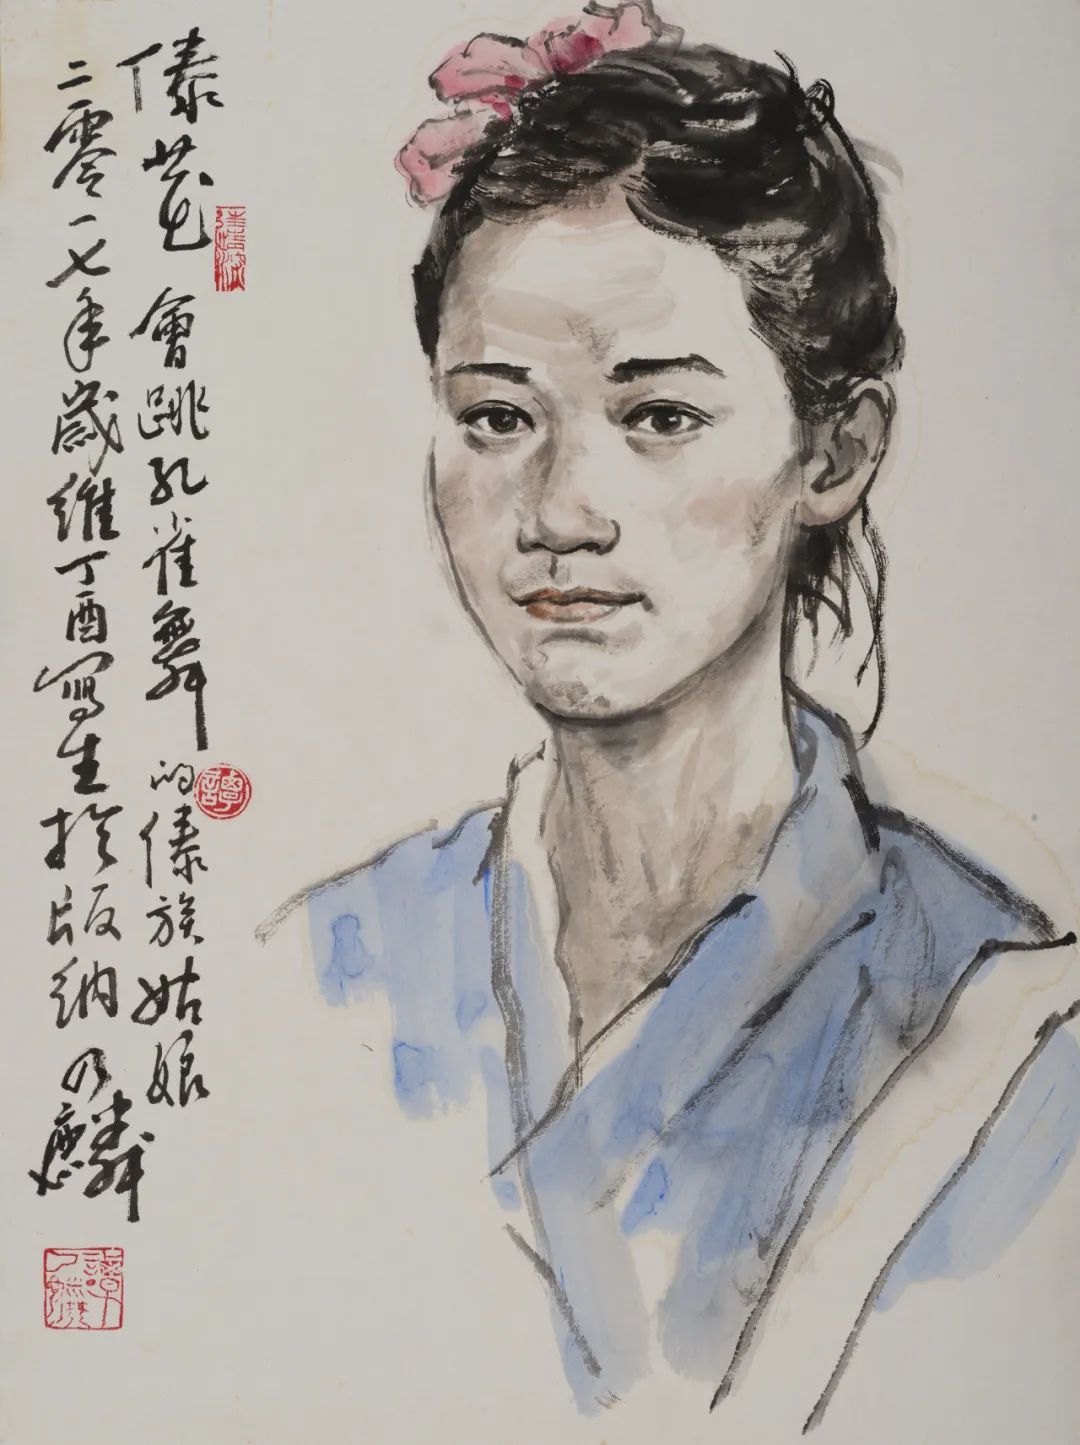 傣花 會跳孔雀舞的傣族姑娘
二零一七年歲維丁酉寫生於版納 乃麟
譚
譚乃麟